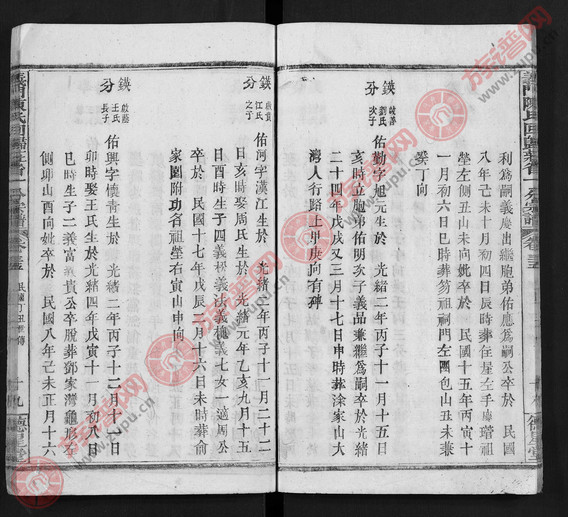 利爲嗣義廣出繼胞弟佑應爲嗣公卒於 民國
八年己未十月初四日辰時葬在屋左手瓊瑨祖
塋左側丑山未向妣卒於 民國十五年丙寅十
一月初六日巳時葬笏祖祠門左團包山丑未兼
癸丁向
鍈 峻善 劉氏 次子
分
佑勤字旭元生於 光緒二年丙子十一月十五日
亥時立胞弟佑明次子義品兼繼爲嗣卒於光緒
二十四年戊戌又三月十七日申時葬涂家山大
灣人行路上甲庚向有碑
鍈 江氏 之子
分
佑河字漢江生於 光緒二年丙子十一月二十二
日亥時娶周氏生於 光緒元年乙亥九月十五
日酉時生子四義義法義槐義七女一適周公
卒於 民國十七年戊辰二月十六日未時葬俞
家園附功名祖塋右寅山申向
鍈 啟 王氏 長子
分
佑興字懷青生於 光緒二年丙子十二月十五日
卯時娶王氏生於光緒四年戊寅十一月初八日
巳時生子二義富義貴公卒脫葬鄧家灣龜形右
側卯山酉向妣卒於 民國八年己未正月十六
義門陳氏回歸莊
德星堂
族譜网
www.zupu.cn